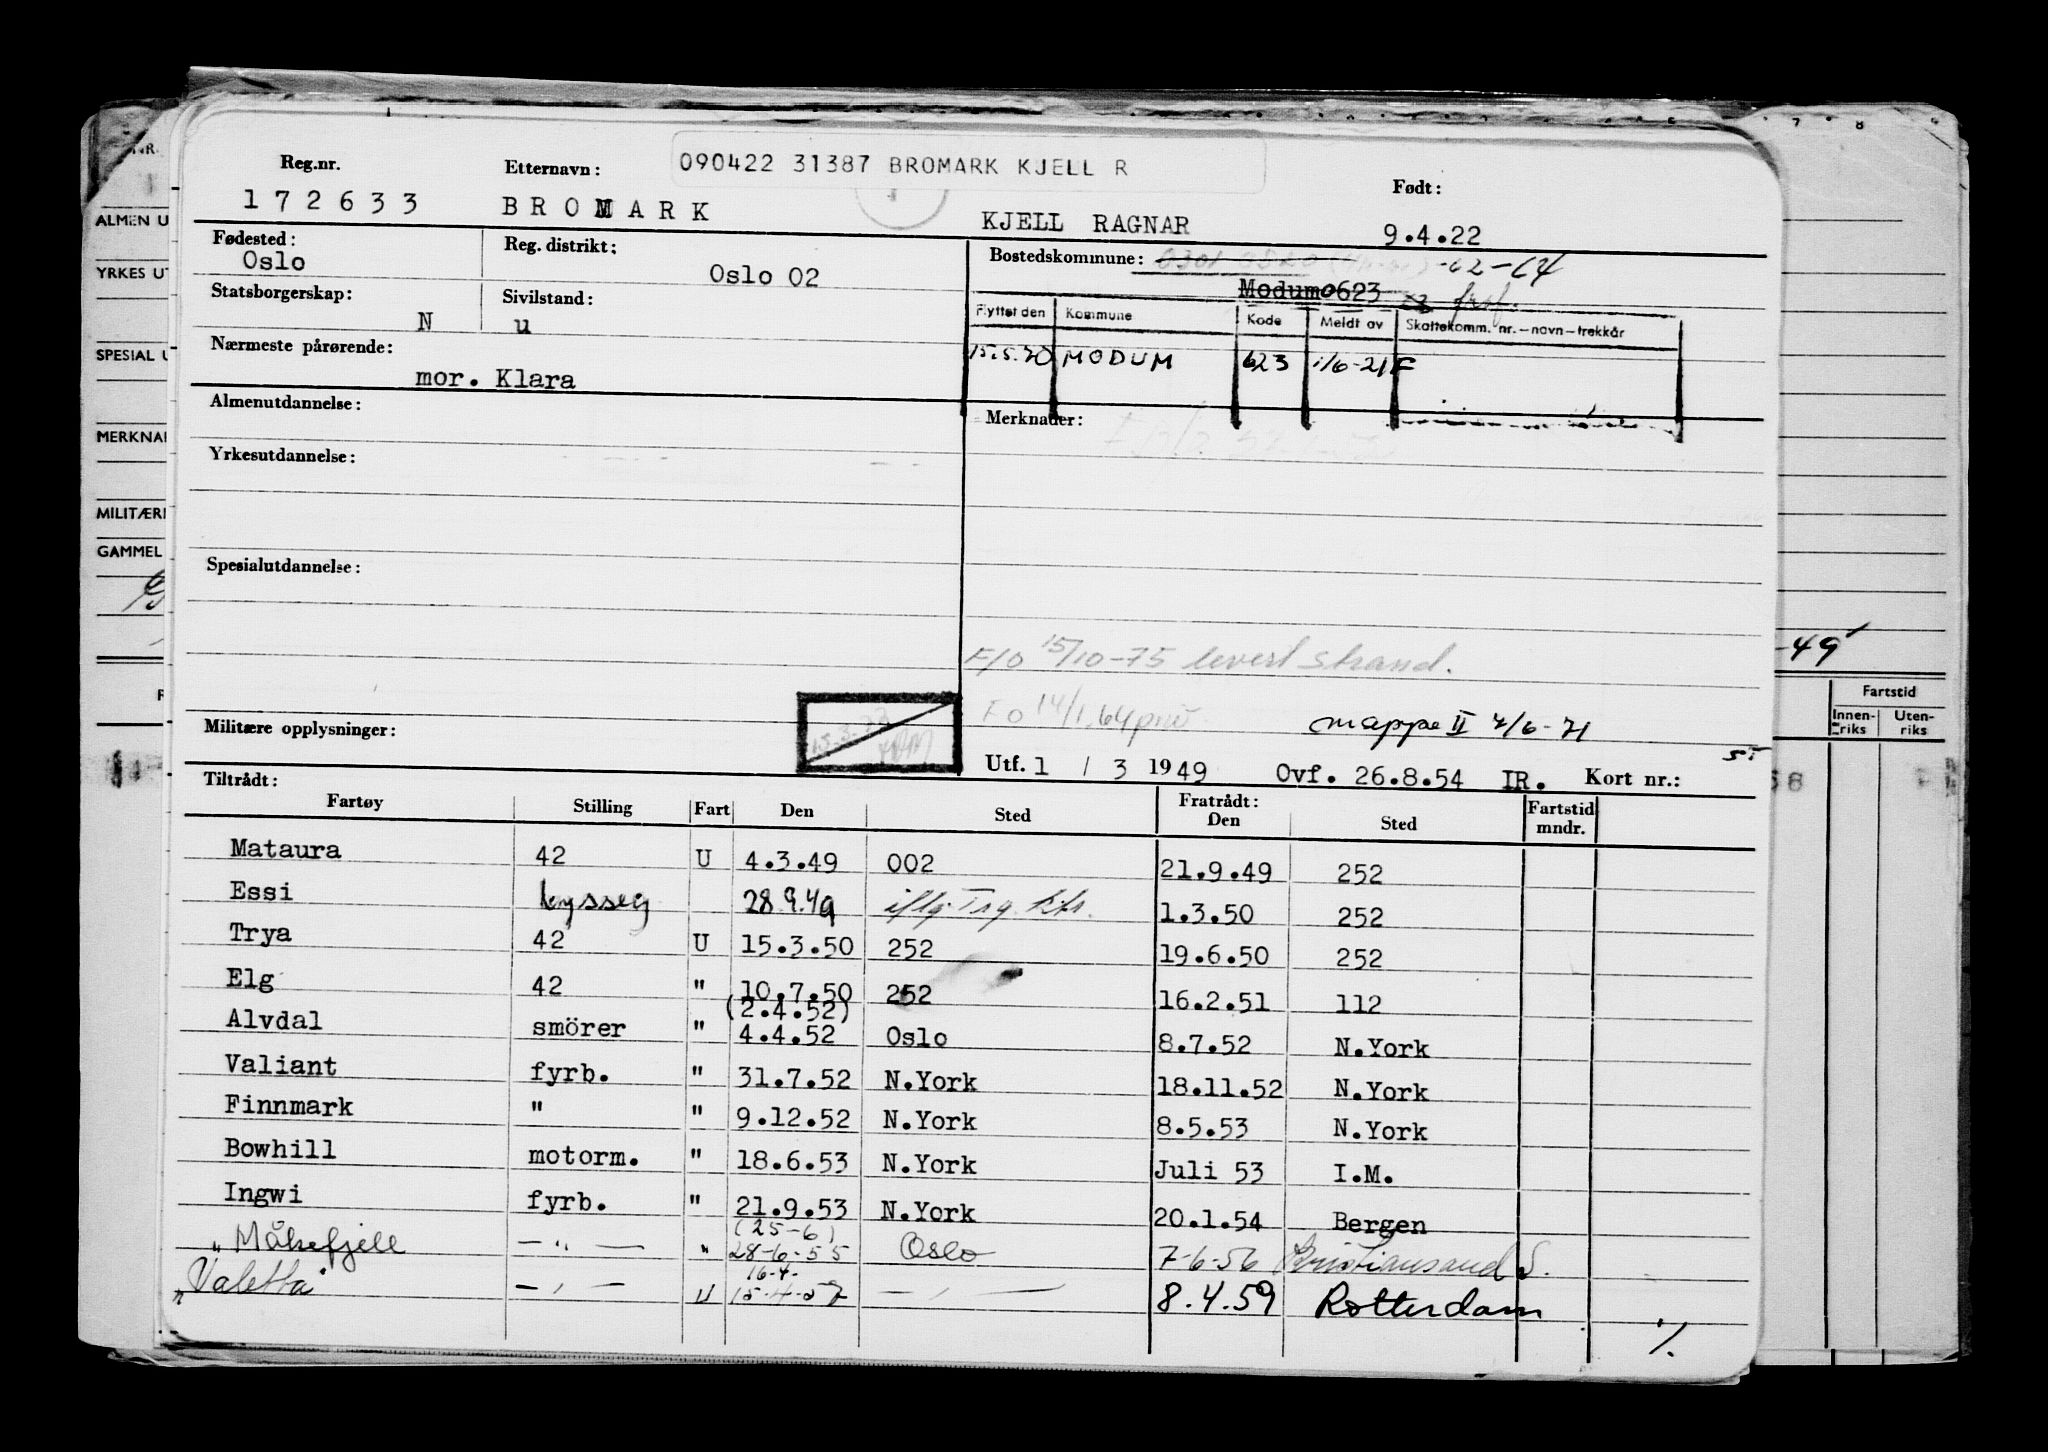 090422 31387 BROMARK KJELL R
Reg.nr. Etternavn: Født:
172633 BROMARK KJELL RAGNAR 9.4.22
Fødested: Reg. distrikt: Bostedskommune: -62-64
Oslo Oslo 02
Modum 0623
Statsborgerskap: Sivilstand:
N u
Flyttet den Kommune Kode Meldt av Skattekomm. nr.-navn-trekkår
15.5.70 MODUM 623 1/6-71 F
Nærmeste pårørende:
mor. Klara
Almenutdannelse: Merknader:
Yrkesutdannelse:
Spesialutdannelse:
F/O 15/10-75 levert strand.
FO 14/1.64
mappe II 7/6-71
Militære opplysninger:
Utf. 1 / 3 1949 Ovf. 26.8.54 IR. Kort nr.:
Tiltrådt: Fratrådt:
Fartøy Stilling Fart Den Sted Den Sted Fartstid mndr.
Mataura 42 U 4.3.49 002 21.9.49 252
Essi 28.9.49 1.3.50 252
Trya 42 U 15.3.50 252 19.6.50 252
Elg 42 " 10.7.50 252 16.2.51 112
(2.4.52)
Alvdal smörer " 4.4.52 Oslo 8.7.52 N.York
Valiant fyrb. " 31.7.52 N.York 18.11.52 N.York
Finnmark " " 9.12.52 N.York 8.5.53 N.York
Bowhill motorm. " 18.6.53 N.York Juli 53 I.M.
Ingwi fyrb. " 21.9.53 N.York 20.1.54 Bergen
(25-6)
" Måkefjell — " — " 28-6-55 Oslo 7-6-56 Kristiansand S.
16-4-
" Valetta — " — U 15-4-57 — " — 8.4.59 Rotterdam
ALMEN U
YRKES UT
SPESIAL U
MERKNA
MILITÆR
GAMMEL
-49
Fartstid
Innenriks Utenriks